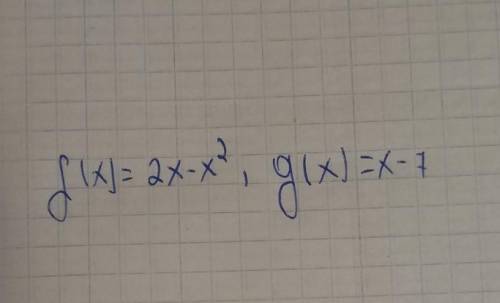 f(x)= 2x-x², g(x)=x-7